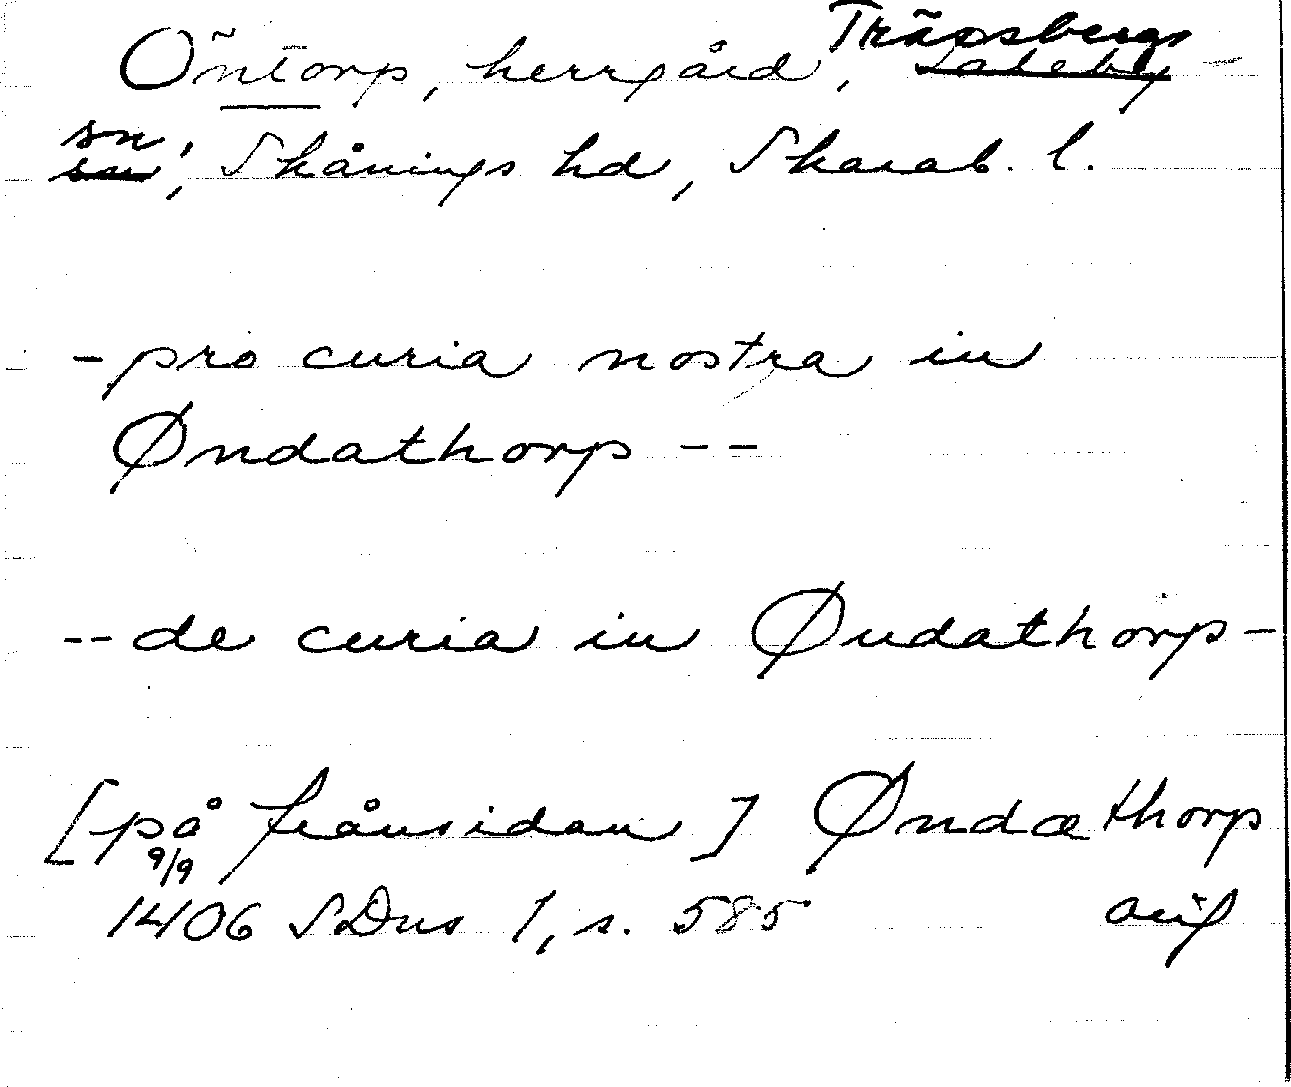 Öntorp, herrgård, Trävsbergs ~~Saleby~~ -
sn ~~sn~~, Skånings hd, Skarab. l.
- pro curia nostra in
Øndathorp --
-- de curia in Øndathorp -
[på frånsidan] Øndæthorp
9/9
1406 SDns 1, s. 585 avs